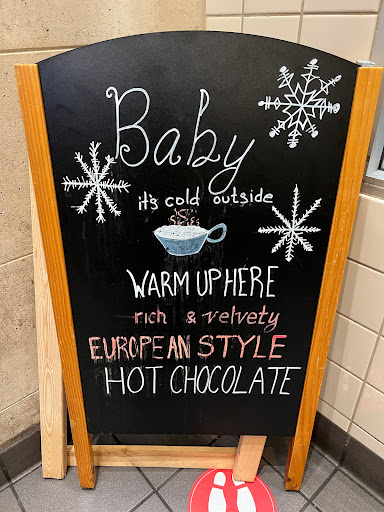 Baby
it's cold outside
WARM UP HERE
rich & velvety
EUROPEAN STYLE
HOT CHOCOLATE